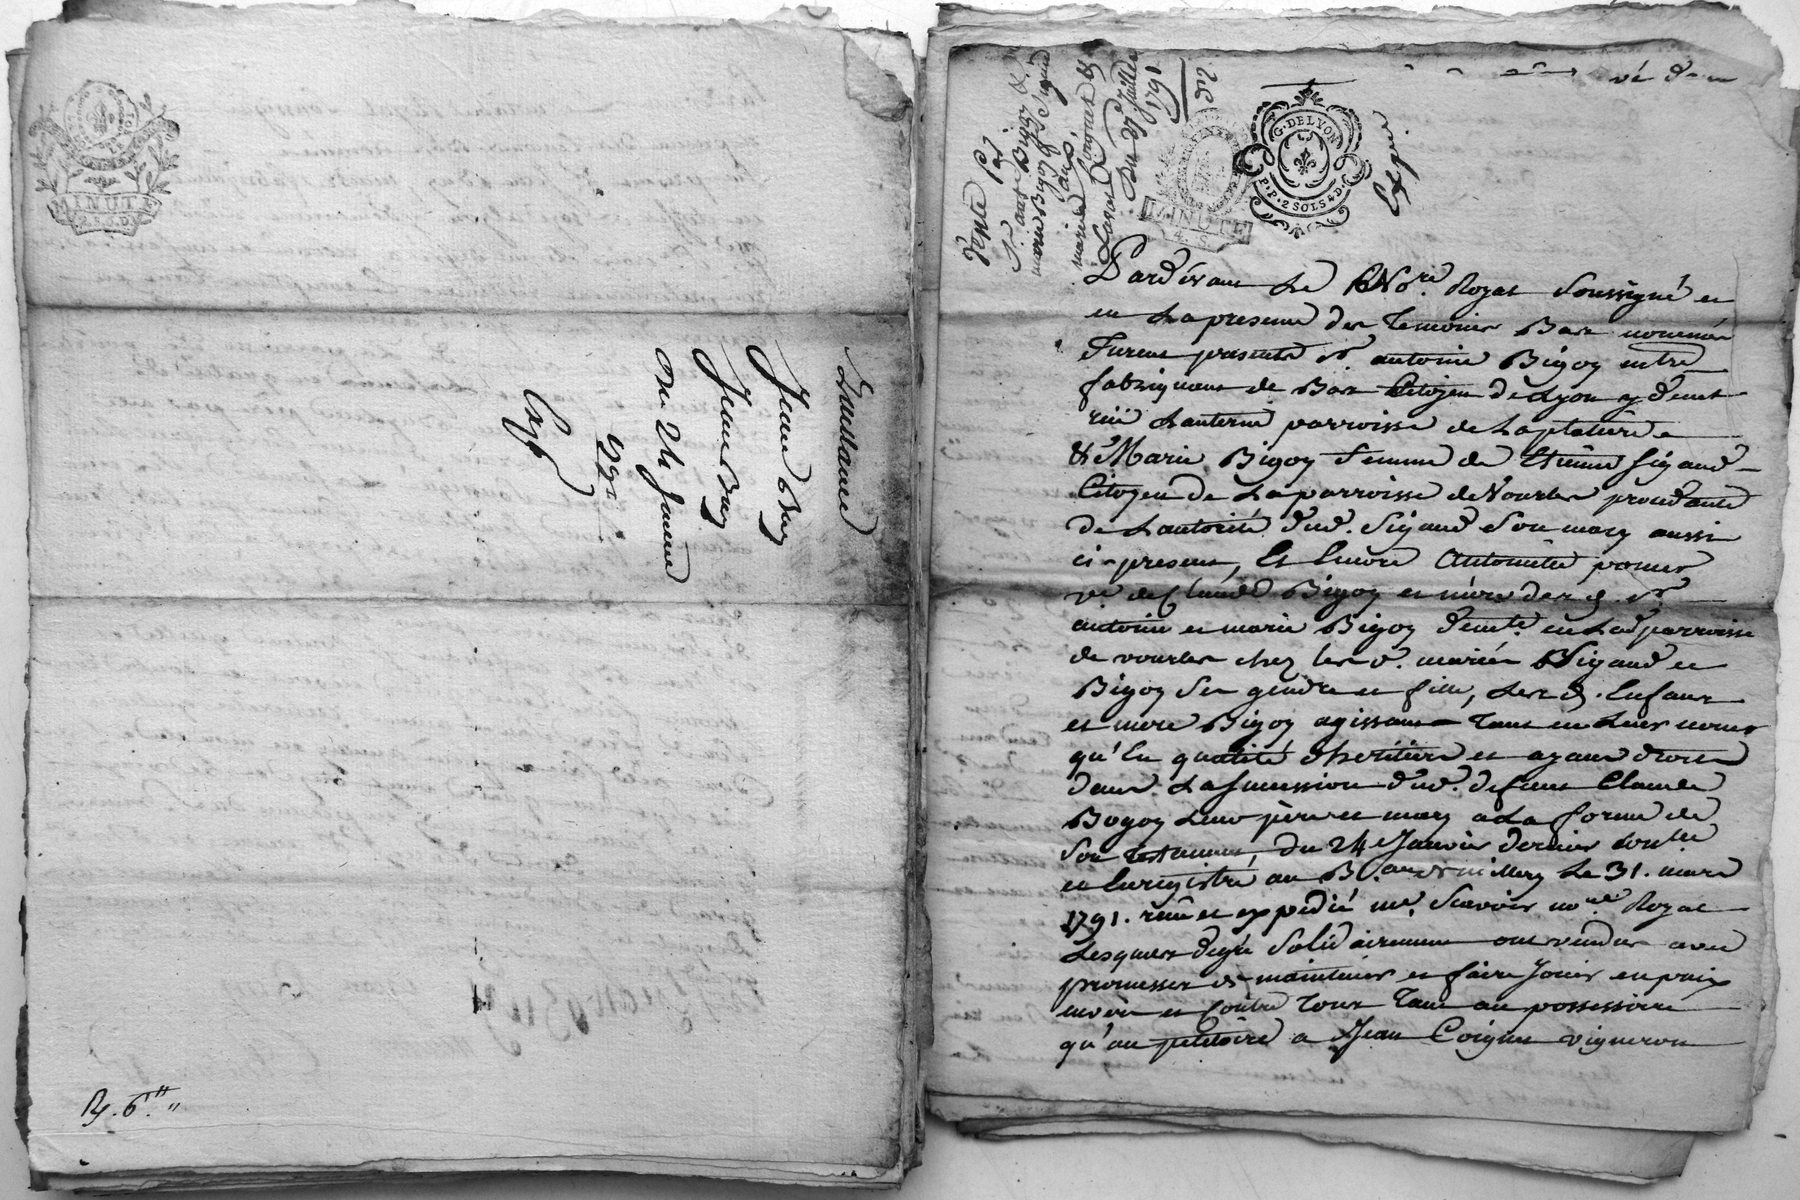 MINUTE
2. S. 6. D.
Quittance
Jean Buy
Jean Buy
Du 24 Janvier
Exp
R. 6.
Vente par
Sr. antne Bigoy &
marie Bigoy fe Sigaud
marie
Du 27 Juillet
1791
Expedié
G. DE LYON
P.P. 2 SOLS 4 D.
MINUTE
Pardevant Le Nore. Royal soussigné et
en La presence des Temoins Bas nommés
furent présents sr antoine Bigoy mtre
fabriquant de Bas Citoyen de Lyon y demt
rüe Lanterne parroisse de Laplatière
& Marie Bigoy femme de Etienne Sigaud
Citoyen de La parroisse de Vourles procedante
de Lautorité dud. Sigaud son mary aussi
ci-present, Et Encore Antoinette
ve de Claude Bigoy et mère desd. sr
antoine et marie Bigoy demte. en Lad parroisse
de vourles chez lesd. mariés Sigaud et
Bigoy ses gendre et fille, Lesd. Enfans
et mere Bigoy agissant Tant en Leurs noms
qu'En qualité d'heritiers et ayant droit
dans La Succession dud. defunt Claude
Bogoy Leur père et mary a La forme de
son testament, du 24 Janvier dernier conlle
et Enregistré au Bau de millery Le 31. mars
1791. reçu et expedié me. Scavoir nore Royal
Lesquels degré Solidairement ont vendu avec
promesses de maintenir et faire Jouir en paix
envers et Contre Tous Tant au possessoire
qu'au petitoire a Jean Coignet vigneron